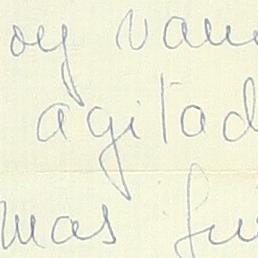 oy vam
agitad
mas fu